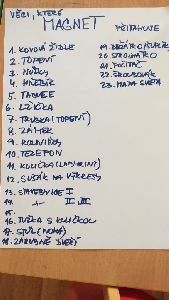 VĚCI, KTERÉ
MAGNET
PŘITAHUJE
1. KOVOVÁ ŽIDLE
2. TOPENÍ
3. NŮŽKY
4. HŘEBÍK
5. TABULE
6. LŽIČKA
7. TRUBKA (TOPENÍ)
8. ZÁMEK
9. KOLÍČKY
10. TELEFON
11. KULIČKA (LABYRINT)
12. SUŠÁK NA VÝKRESY
13. STAVEBNICE I
14. -"- II
15.
16. TUŽKA S KLÍČKEM
17. STŮL (NOHA)
18. ZÁRUBNĚ DVEŘÍ
20. STRUHÁTKO
21. POČÍTAČ
22. ŠROUBOVÁK
23. MAPA SVĚTA